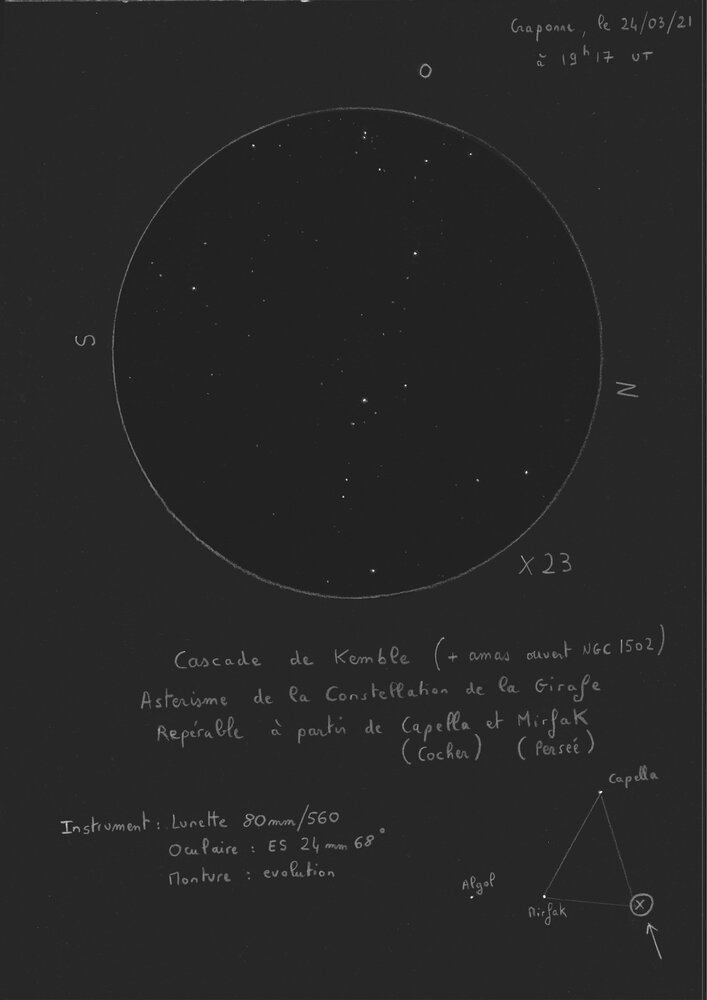 Craponne, le 24/03/21
à 19h17 UT
O
S
N
X 23
Cascade de Kemble (+ amas ouvert NGC 1502)
Asterisme de la Constellation de la Girafe
Repérable à partir de Capella et Mirfak
(Cocher) (Persée)
Instrument : Lunette 80mm/560
Oculaire : ES 24mm 68°
Monture : evolution
Capella
Algol
Mirfak
X